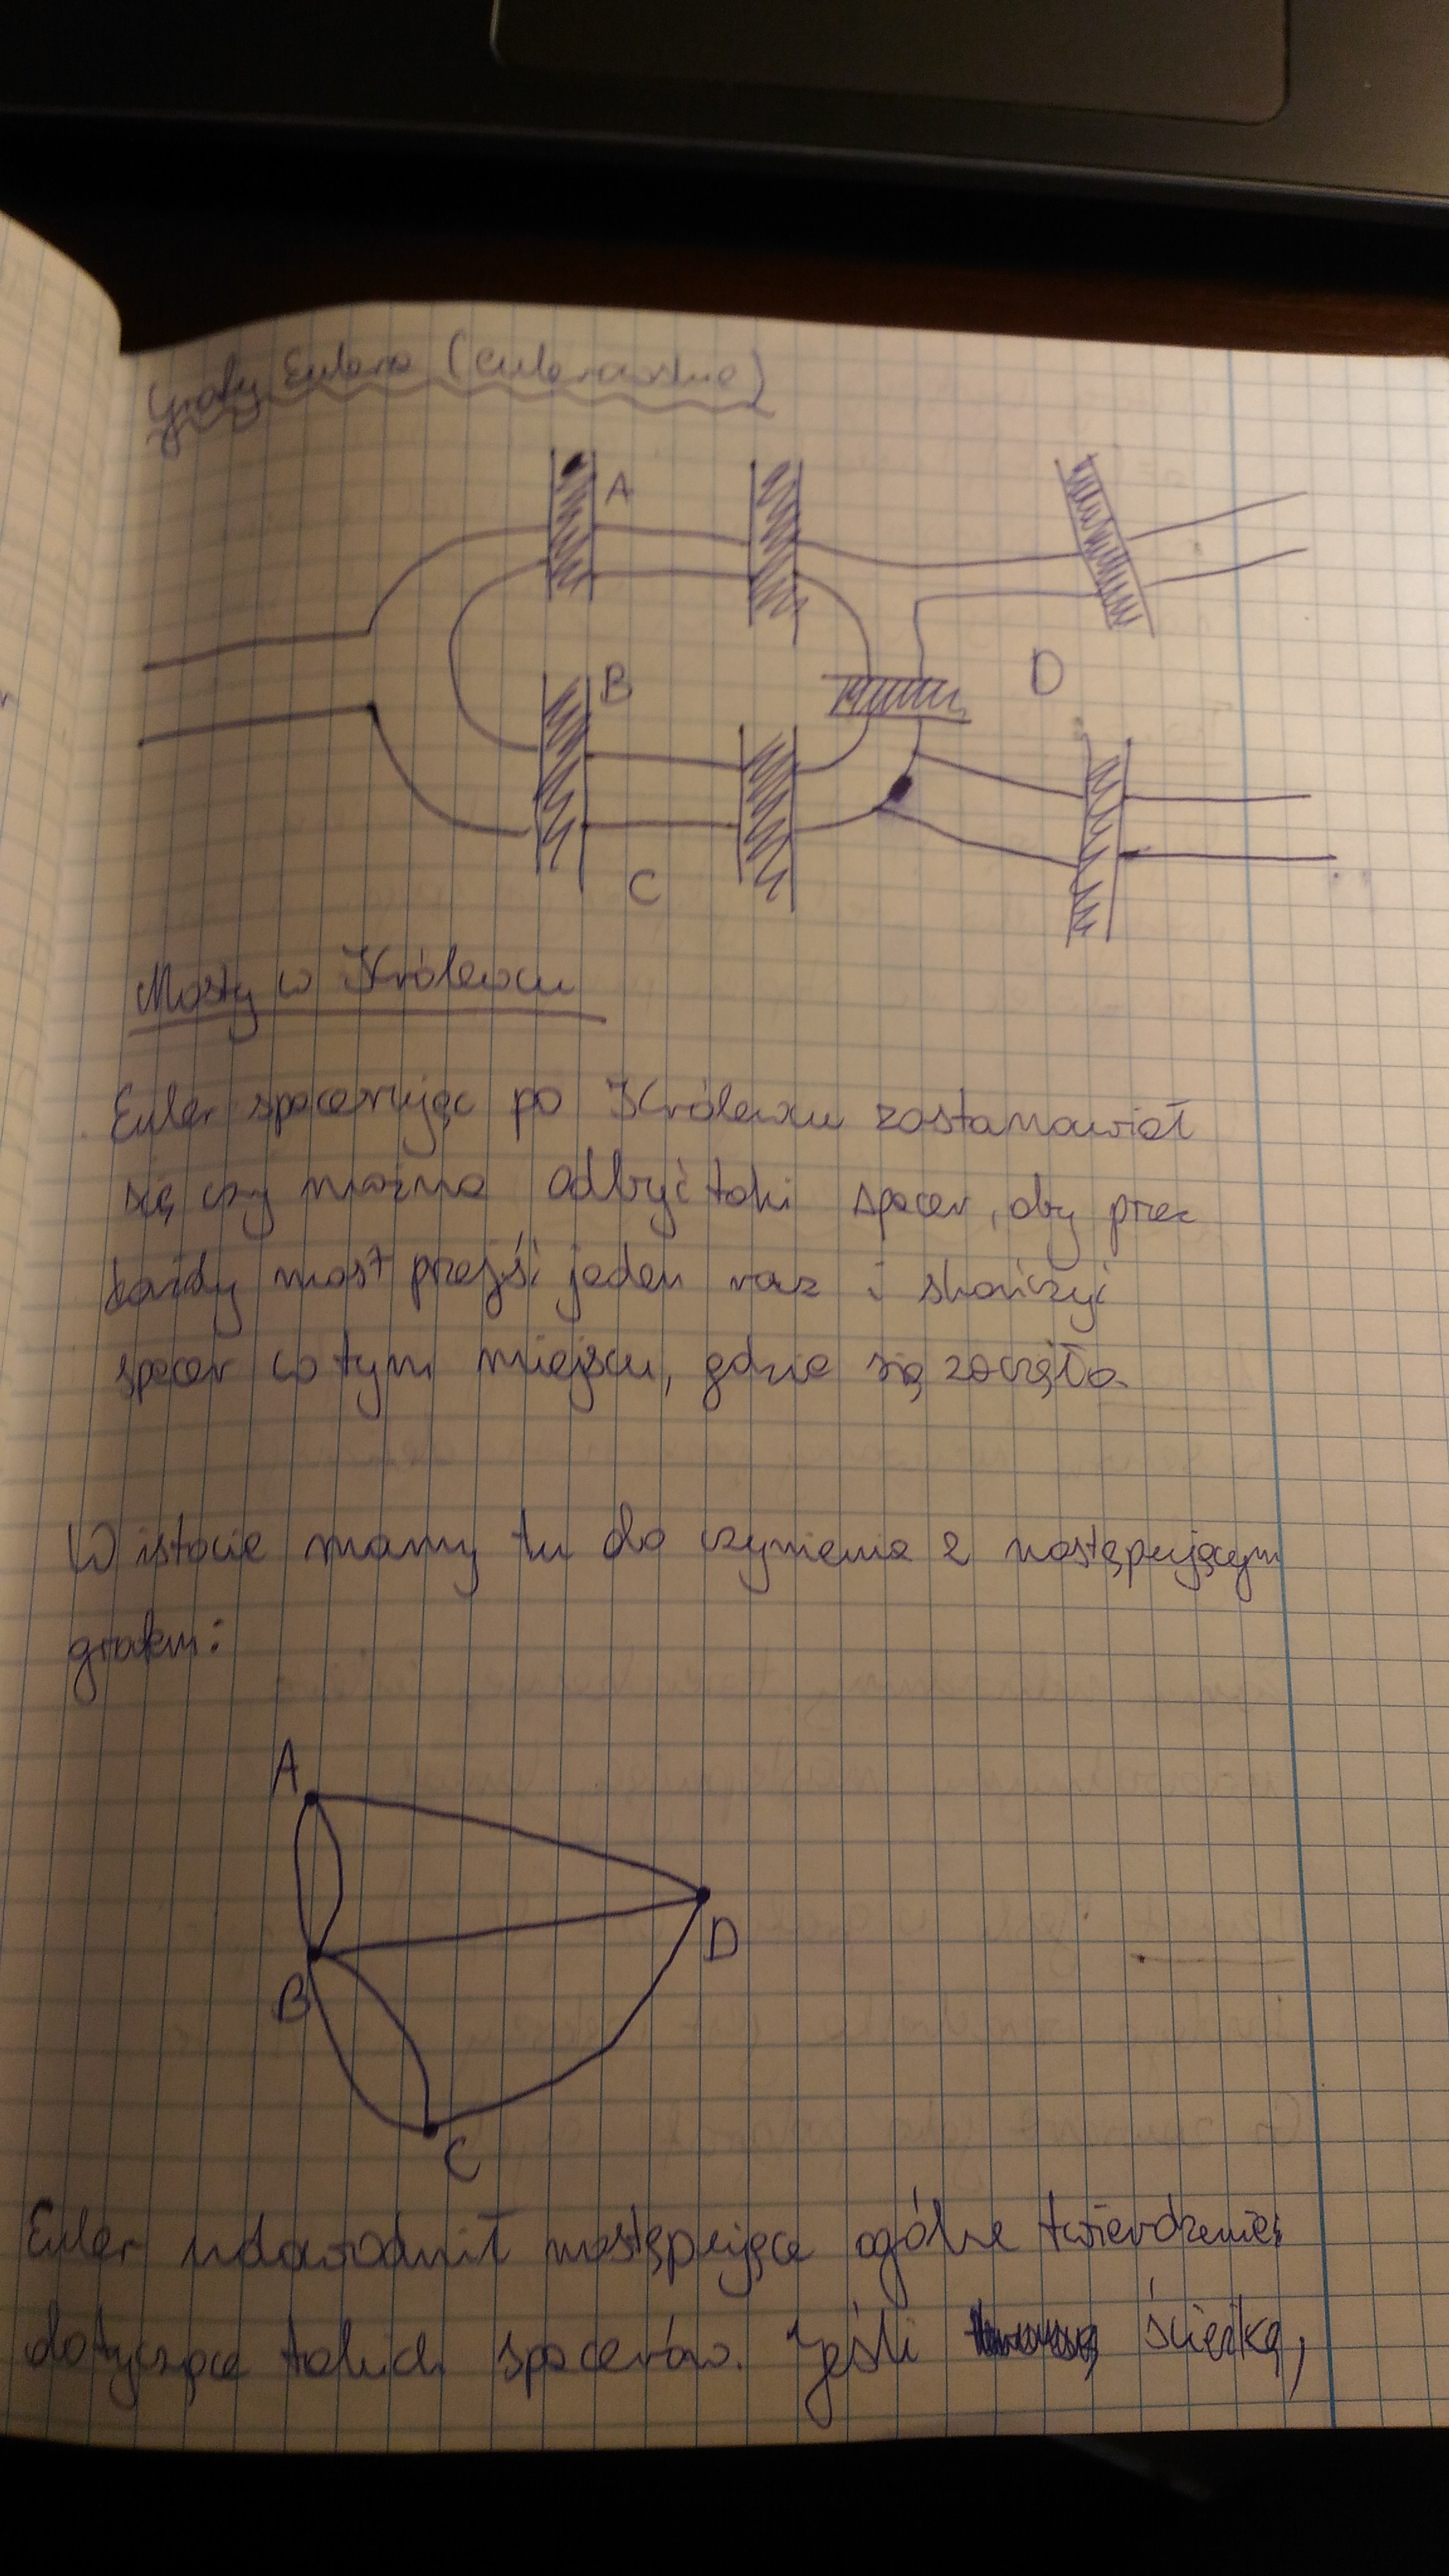 Grafy Eulera (eulerowskie)
A
B
D
C
Mosty w Królewcu
Euler spacerując po Królewcu zastanawiał
się czy można odbyć taki spacer, aby przez
każdy most przejść jeden raz i skończyć
spacer w tym miejscu, gdzie się zaczęło.
W istocie mamy tu do czynienia z następującym
grafem:
A
D
B
C
Euler udowodnił następujące ogólne twierdzenie
dotyczące takich spacerów. Jeśli ścieżkę,